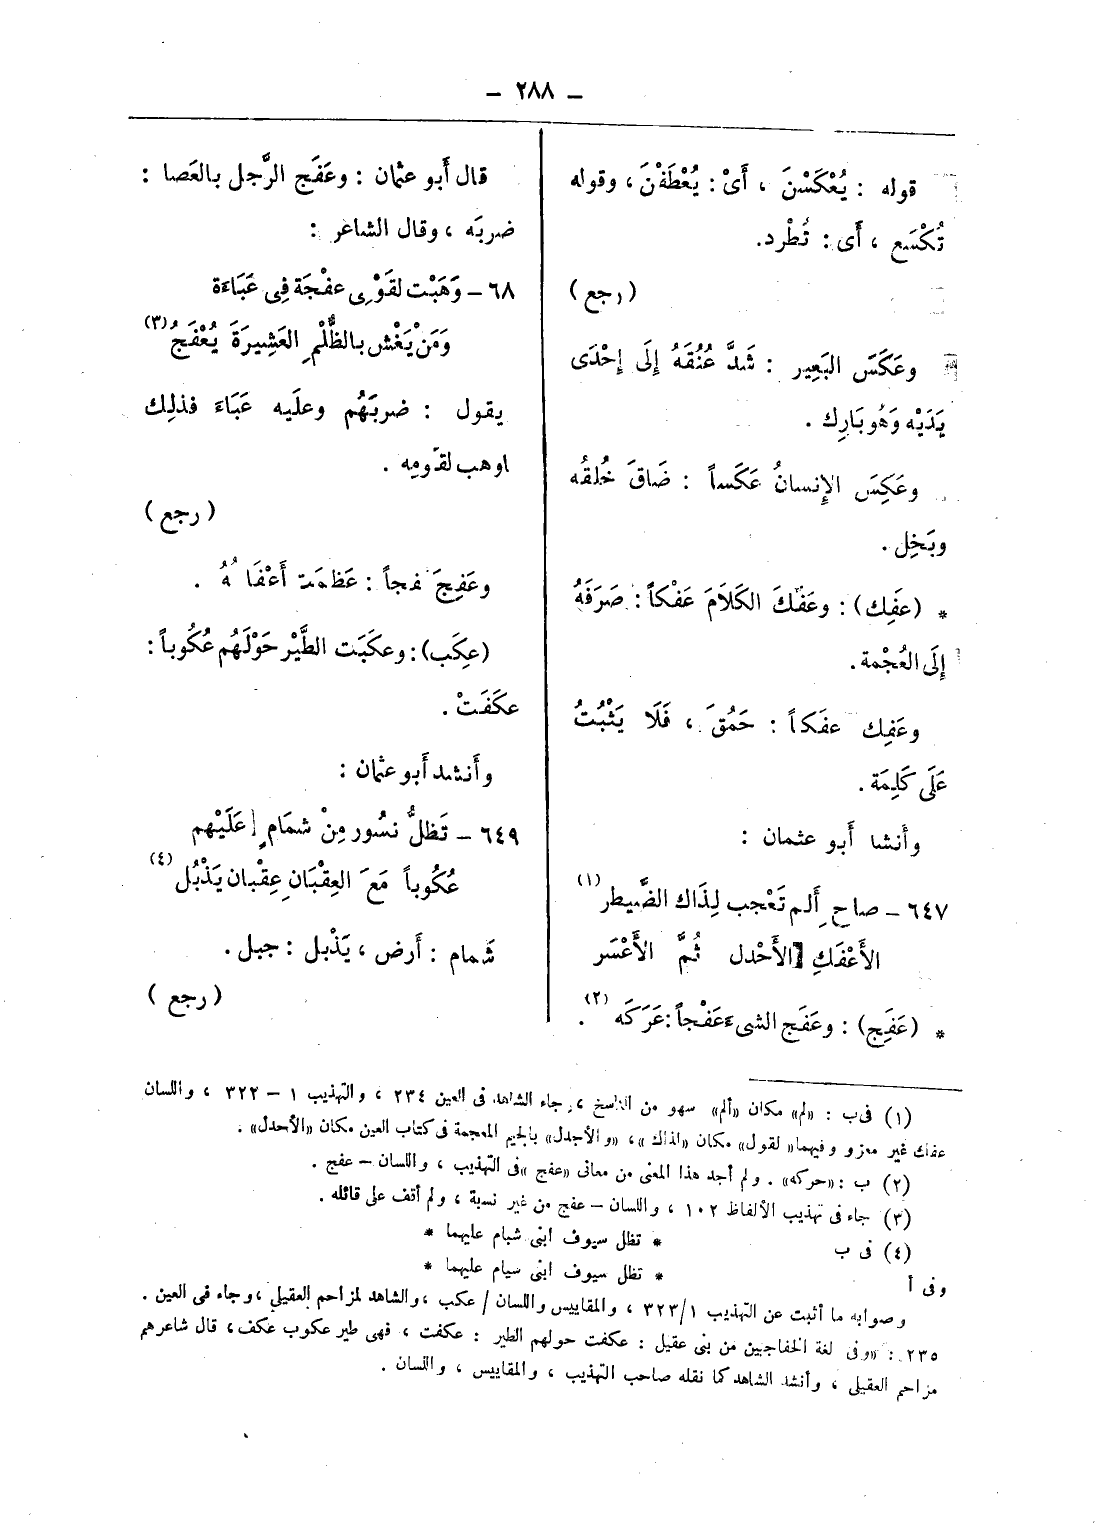 — ٢٨٨ —
قوله : يُعْكَسْنَ ، أَىْ : يُعْطَفْنَ ، وقوله
تُكْسَع ، أَى : تُطْرد.
( رجع )
وعَكَسَ البَعِير : شَدَّ عُنُقَهُ إِلَى إِحْدَى
يَدَيْه وَهُو بَارِك .
وعَكِسَ الإِنسانُ عَكَساً : ضَاقَ خُلقُه
وبَخِل .
* (عفَِك) : وعَفَكَ الكَلَامَ عَفْكاً : صَرَفَهُ
إِلَى العُجْمة .
وعَفِك عفَكاً : حَمُقَ ، فَلَا يَثْبُتُ
عَلَى كَلِمَة .
وأنشا أَبو عثمان :
٦٤٧ – صاحِ أَلم تَعْجب لِذَاك الضَّيطر (١)
الأَعْفَكِ الأَحْدل ثُمَّ الأَعْسَر
* (عَفَِج) : وعَفَج الشىء عَفْجاً : عَرَكَه (٢) .
قال أَبو عثمان : وعَفَج الرَّجل بالعَصا :
ضربَه ، وقال الشاعر :
٦٨ – وَهَبْت لقَوْمِى عفْجَة فِى عَبَاءَة
وَمَنْ يَغْش بالظُّلْمِ العَشِيرَةَ يُعْفَجُ (٣)
يقول : ضربَهُم وعلَيه عَبَاءَ فذلِك
اوهب لقَومِه .
( رجع )
وعَفِجَ فجاً : عَظمَت أَعْفَا هُ .
(عكَِب) : وعكَبَت الطَّيْر حَوْلَهُم عُكُوباً :
عكَفَتْ .
وأَنشد أَبو عثمان :
٦٤٩ – تَظلُّ نسُور مِنْ شمَامٍ عَلَيْهم
عُكُوباً مَعَ العِقْبَانِ عِقْبان يَذْبُل (٤)
شَمام : أَرض ، يَذْبل : جبل .
( رجع )
(١) فى ب : «لم» مكان «ألم» سهو من الناسخ ، جاء الشاهد فى العين ٢٣٤ ، والتهذيب ١ – ٣٢٢ ، واللسان
عفك غير معزو وفيهما «لقول» مكان «لذاك» ، «والأجدل» بالجيم المعجمة فى كتاب العين مكان «الأحدل» .
(٢) ب : «حركه» . ولم أجد هذا المعنى من معانى «عفج» فى التهذيب ، واللسان – عفج .
(٣) جاء فى تهذيب الألفاظ ١٠٢ ، واللسان – عفج من غير نسبة ، ولم أقف على قائله .
(٤) فى ب * تظل سيوف ابنى شبام عليهما *
وفى أ * تظل سيوف ابنى سيام عليهما *
وصوابه ما أثبت عن التهذيب ٣٢٣/١ ، والمقاييس واللسان / عكب ، والشاهد لمزاحم العقيلى ، وجاء فى العين .
٢٣٥ : «وفى لغة الخفاجيين من بنى عقيل : عكفت حولهم الطير : عكفت ، فهى طير عكوب عكف ، قال شاعرهم
مزاحم العقيلى ، وأنشد الشاهد كما نقله صاحب التهذيب ، والمقاييس ، واللسان .